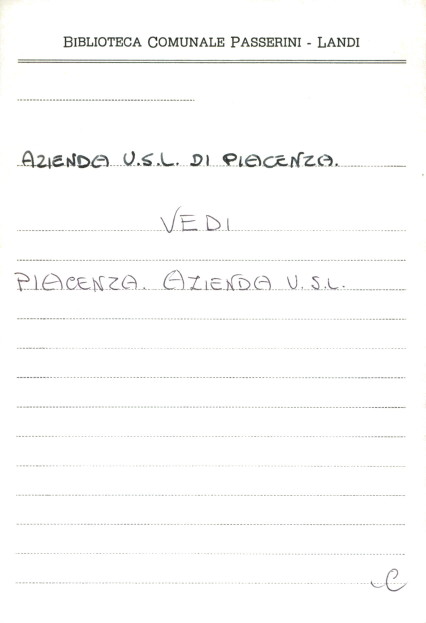 BIBLIOTECA COMUNALE PASSERINI - LANDI
AZIENDA U.S.L. DI PIACENZA.
VEDI
PIACENZA. AZIENDA U.S.L.
C